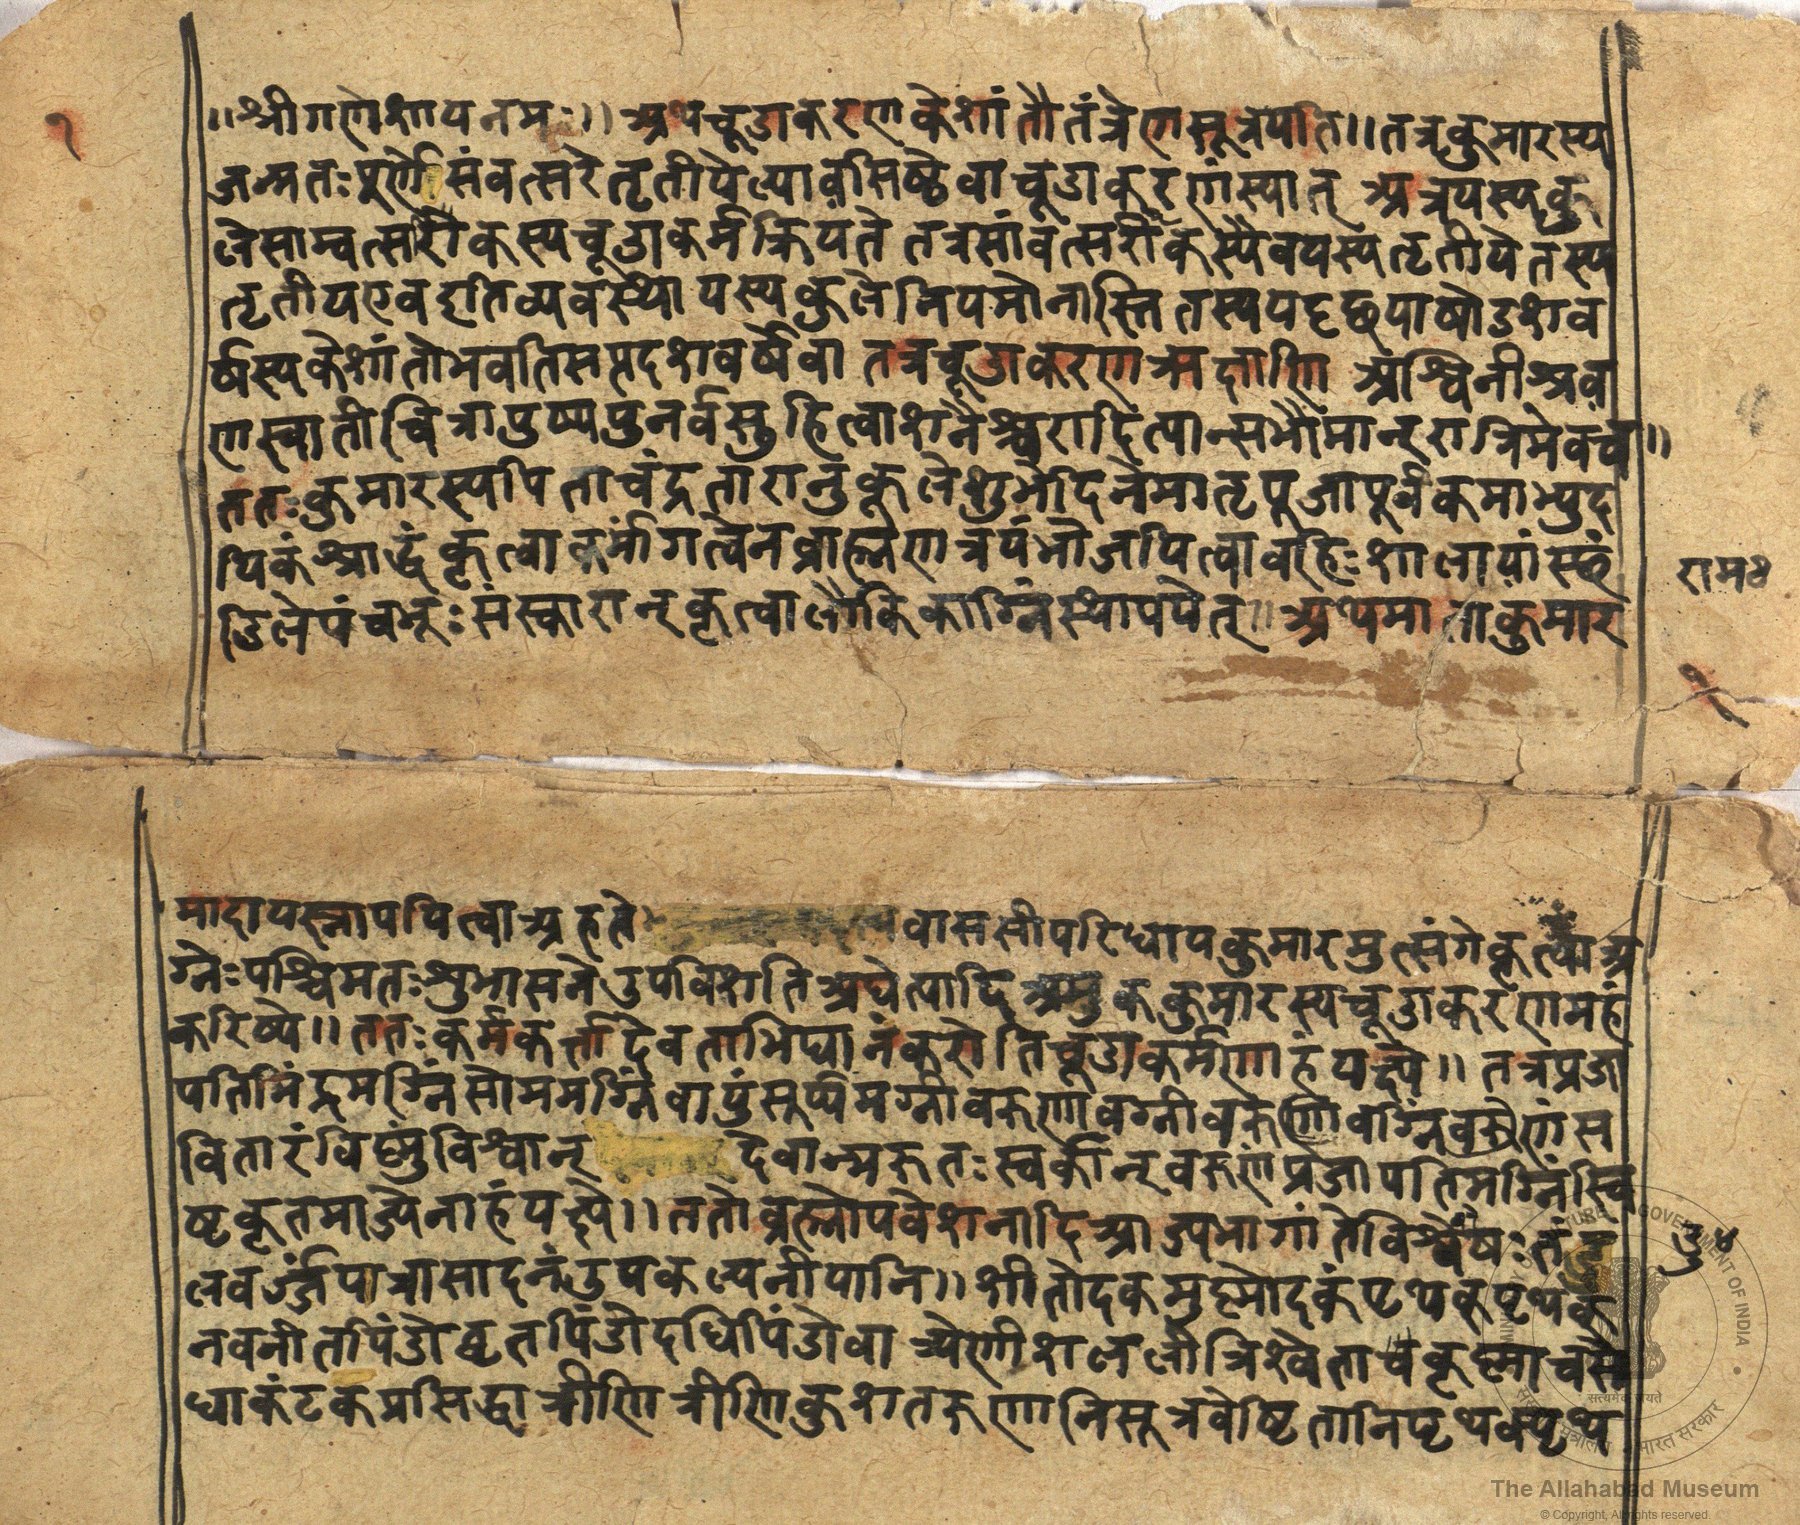 १
॥श्रीगणेशायनमः॥ अथचूडाकरणकेशांतौतंत्रेणसूत्रयति॥तत्रकुमारस्य
जन्मतःपूर्णे संवत्सरे तृतीयेप्यावसिष्ठेवा चूडाकरणंस्यात् अत्रयस्यकु
लेसाम्वत्सरीकस्यचूडाकर्मक्रियते तत्रसांवत्सरीकस्यैवयस्यतृतीयेतस्य
तृतीयएवइतिव्यवस्था यस्यकुलेनियमोनास्ति तस्ययदृछयाषोडशव
र्षस्यकेशांतोभवतिसप्तदशवर्षेवा तत्रचूडाकरण अश्विनीश्रव
णस्वातीचित्रापुष्यपुनर्वसु हित्वाशनैश्चरादित्यान्सभौमान् रात्रिमेवच॥
ततःकुमारस्यपिताचंद्रतारानुकूलेशुभेदिनेमातृपूजापूर्वकमाभ्युद
यिकंश्राद्धंकृत्वाकर्मांगत्वेनब्राह्मणत्रयंभोजयित्वावहिःशालायांस्थं
डिलेपंचभूःसंस्कारान्कृत्वालौकिकाग्निंस्थापयेत्॥ अथमाताकुमार
राम४
१
मादायस्नापयित्वाअहते वाससीपरिधाप्यकुमारमुत्संगेकृत्वाअ
ग्नेःपश्चिमतःशुभासनेउपविशति अद्येत्यादि अमुककुमारस्यचूडाकरणमहं
करिष्ये॥ ततःकर्मकर्त्तादेवताभिध्यानंकरोति चूडाकर्मणाहंयक्ष्ये॥ तत्रप्रजा
पतिमिंद्रमग्निंसोममग्निंवायुंसूर्यमग्नीवरुणावग्नीवरुणावग्निंवरुणंस
वितारंविष्णुंविश्वान् देवान्मरुतःस्वर्कान्वरुणंप्रजापतिमग्निंस्वि
ष्टकृतमाज्येनाहंयक्ष्ये॥ ततोब्रह्मोपवेशनादिआज्यभागांतेविशेषः
लवर्ज्जंपात्रासादनंउपकल्पनीयानि॥शीतोदकमुष्णोदकंपृथक्पृथक्
नवनीतपिंडोघृतपिंडोदधिपिंडोवा त्र्येणीशललीत्रिश्वेता
धाकंटकप्रसिद्धात्रीणित्रीणिकुशतरुणानिसूत्रवेष्टितानिपृथक्पृथ
चु४
MINISTRY OF CULTURE, GOVERNMENT OF INDIA
सत्यमेव जयते
भारत सरकार
The Allahabad Museum
© Copyright, All rights reserved.